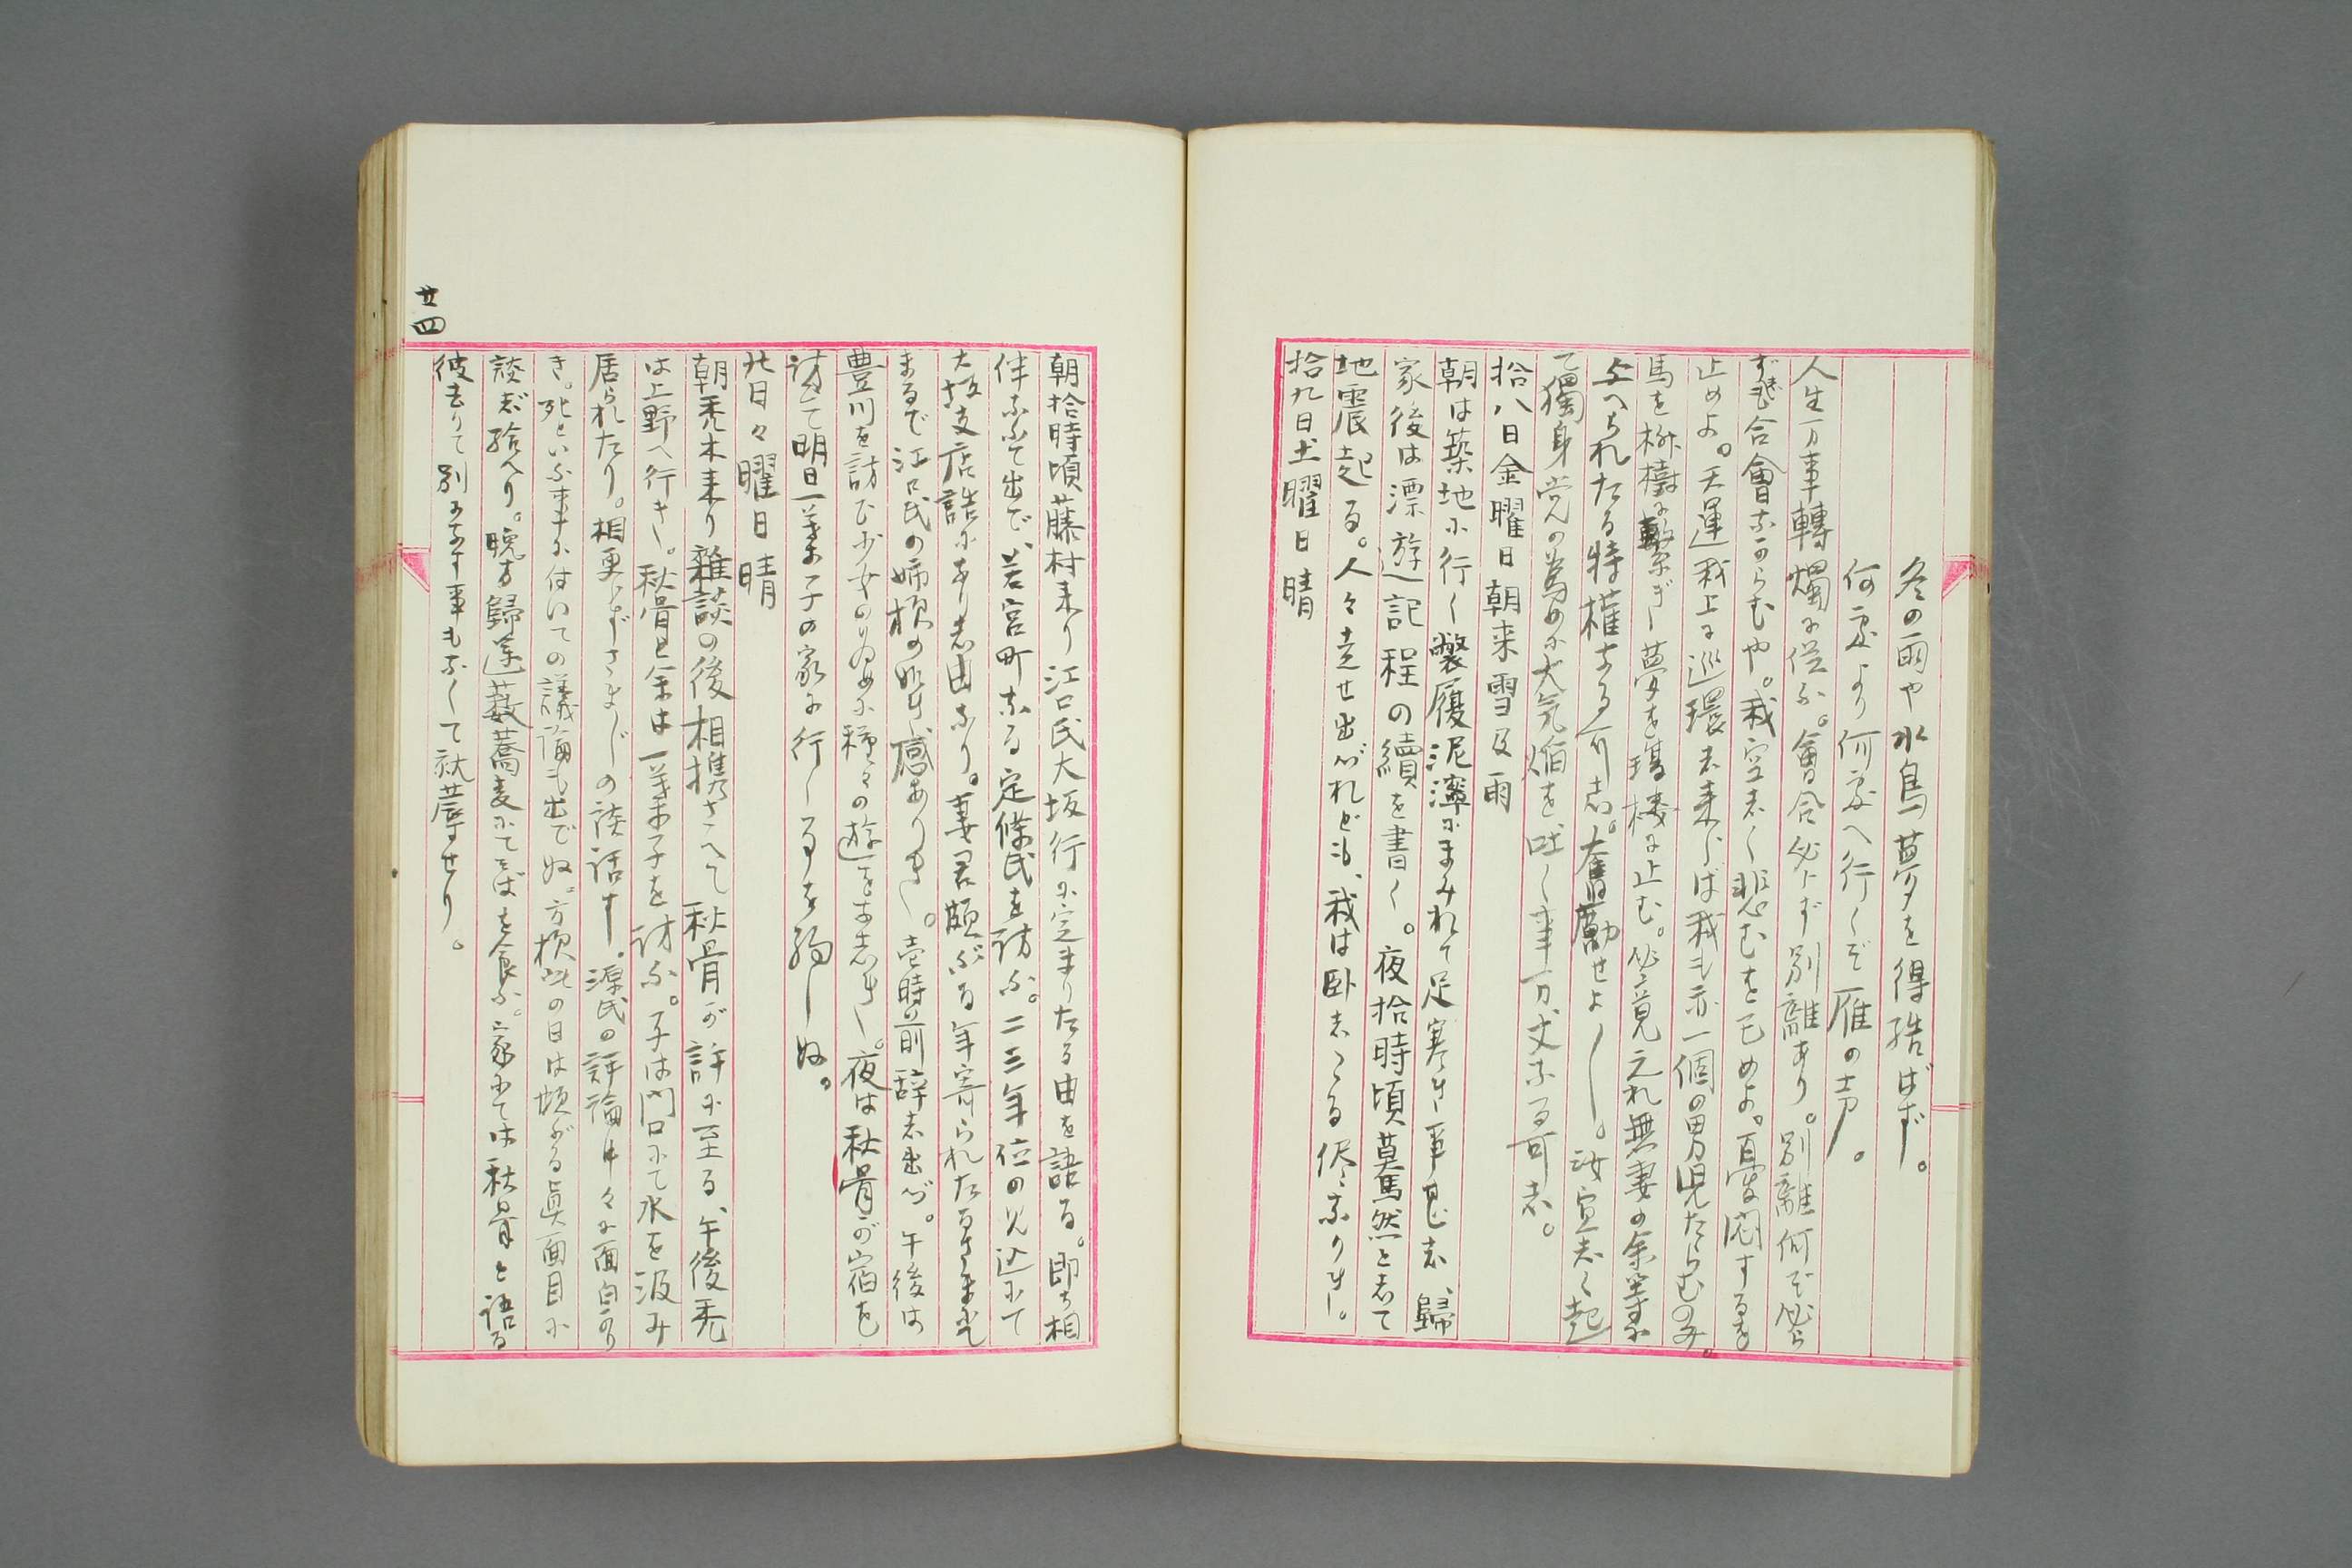 冬の雨や水鳥夢を得結ばず。
何処より何処へ行くぞ雁の声。
人生万事轉燭に從ふ。會合必らず別離あり。別離何ぞ必ら
ず合會なからむや。我空しく悲むを已めよ。百憂悶するを
止めよ。天運我上に巡環し来らば我も亦一個の男児たらむのみ。
馬を柳樹に繋ぎ夢を瓊楼に止む。必竟之れ無妻の余輩に
与へられたる特權なる可し。奮励せよ。汝宜しく起
て獨身党の為めに大気焔を吐く事万丈なる可し。
拾八日金曜日朝来雪及雨
朝は築地に行く弊履泥濘にまみれて足寒き事甚し、歸
家後は漂遊記程の續を書く。夜拾時頃驀然として
地震起る。人々走せ出づれども、我は臥しゝる侭なりき。
拾九日土曜日晴
朝拾時頃藤村来り江口氏大坂行に定まりたる由を語る。即ち相
伴ふて出で、若宮町なる定條氏を訪ふ。二三年位の見込にて
大坂支店詰になりし由なり。妻君頗ぶる年寄られたるさまにて
まるで江口氏の姉様の如き感ありき。壱時前辞し出づ。午後は
豊川を訪ひ少女の為めに種々の遊をなしき。夜は秋骨が宿を
訪ふて明日一葉子の家に行くを約しぬ。
廿日々曜日晴
朝禿木来り雜談の後相携さへて秋骨が許に至る、午後禿
は上野へ行き。秋骨と余は一葉子を訪ふ。子は門口にて水を汲み
居られたり。相更らずさま〲の談話す。源氏の評論中々に面白かり
き。死といふ事に付いての議論も出でぬ。方様此の日は頗ぶる眞面目に
談じ給へり。晩方歸途藪蕎麦にてそばを食ふ。家にては秋骨と語る
彼去りて別になす事もなくして就蓐せり。
廿四